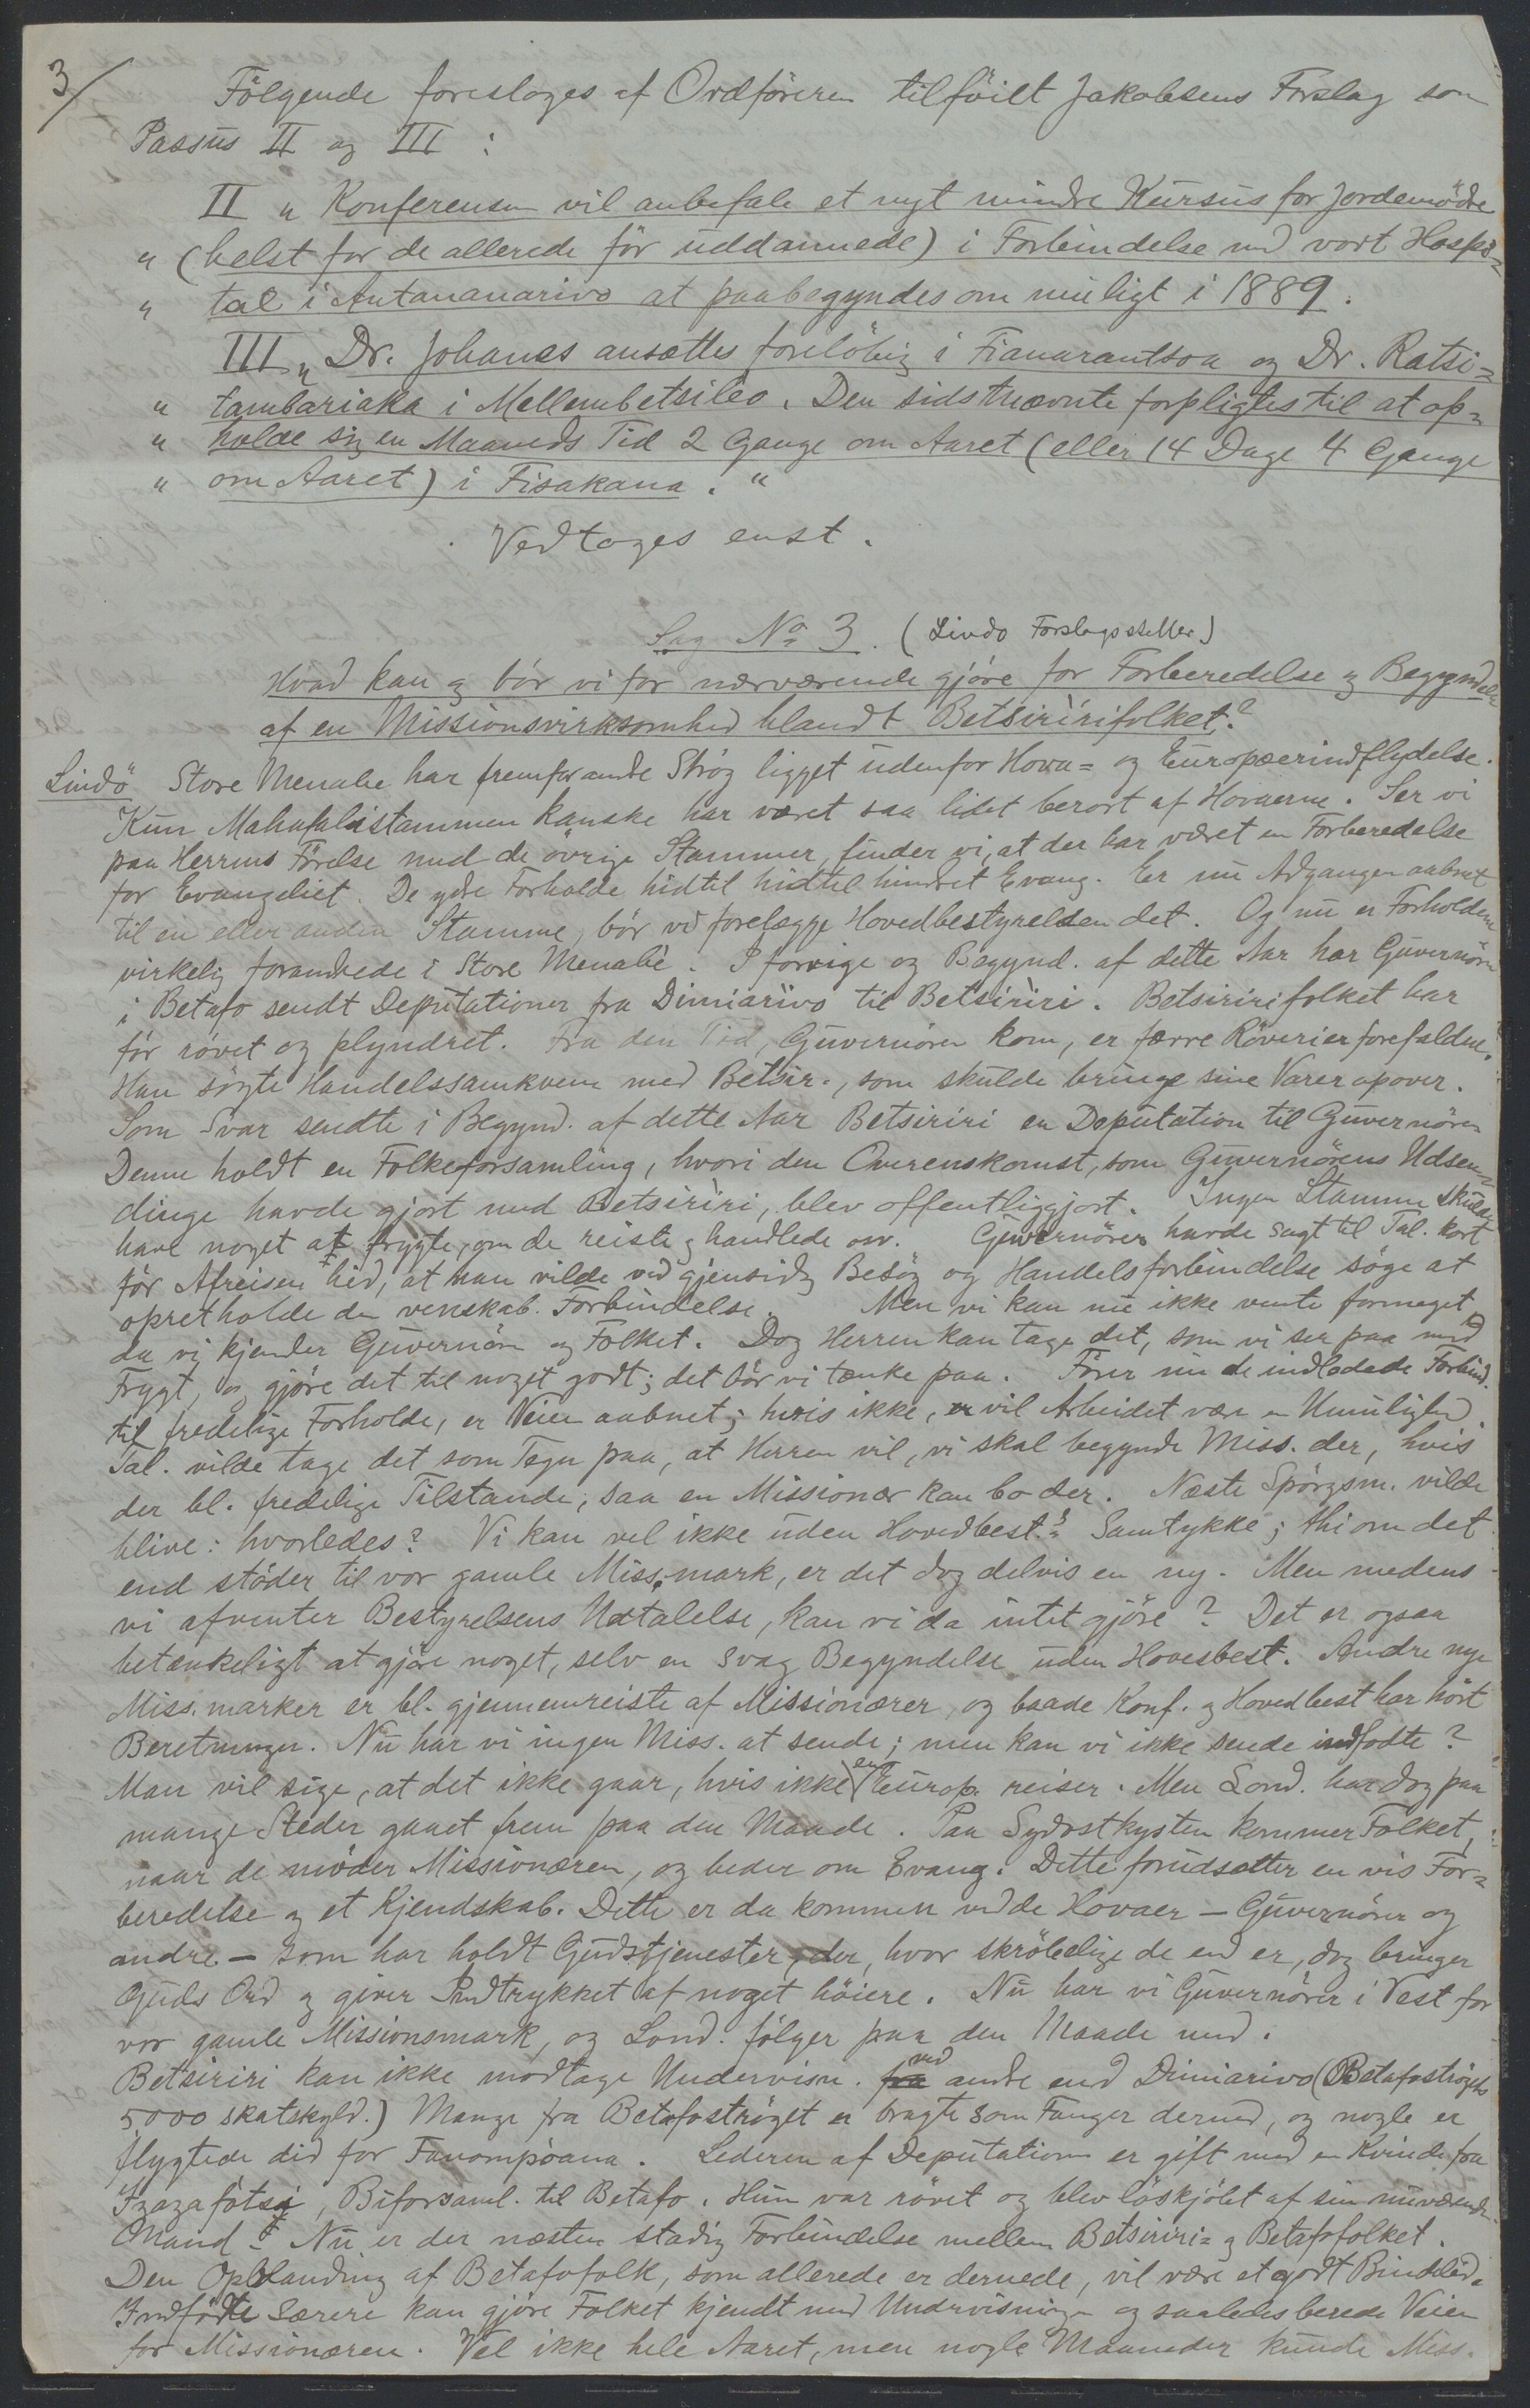 3/
Fölgende foreslages af Ordföreren tilföiet Jakobsens Forslag som
Passus II og III :
II „ Konferensen vil anbefale et nyt mindre Kursus for Jordemödre
„ (helst for de allerede för uddannede) i Forbindelse med vort Hospi=
„ tal i Antananarivo at paabegyndes om muligt i 1889.
III „ Dr. Johanes ansættes forelöbig i Fianarantsoa og Dr. Ratsi=
„ tambariaka i Mellembetsileo. Den sidstnævnte forpligtes til at op=
„ holde sig en Maaneds Tid 2 Gange om Aaret (eller 14 Dage 4 Gange
„ om Aaret) i Fisakana. “
Vedtoges enst.
Sag No 3. (Lindo Forslagsstiller)
Hvad kan og bör vi for nærværende gjöre for Forberedelse og Begyndelse
af en Missionsvirksomhed blandt Betsiririfolket?
Lindö Store Menabe har fremfor andre Strög ligget udenfor Hova= og Europæerindflydelse.
Kun Mahafalistammen kanske har været saa lidet berört af Hovaerne. Ser vi
paa Herrens Förelse med de övrige Stammer, finder vi, at der har været en Forberedelse
for Evangeliet. De ydre Forholde hidtil hidtil hindret Evang. Er nu Adgangen aabnet
til en eller anden Stamme, bör vi forelægge Hovedbestyrelsen det. Og nu er Forholdene
virkelig forandrede i Store Menabe. I forrige og Begynd. af dette Aar har Guvernören
i Betafo sendt Deputationer fra Dimiarivo til Betsiriri. Betsiririfolket har
för rövet og plyndret. Fra den Tid, Guvernören kom, er færre Röverier forefaldne.
Han sögte Handelssamkvem med Betsir., som skulde bringe sine Varer opover.
Som Svar sendte i Begynd. af dette Aar Betsiriri en Deputation til Guvernören
Denne holdt en Folkeforsamling, hvori den Overenskomst, som Guvernörens Udsen=
dinge havde gjort med Betsiriri, blev offentliggjort. Ingen Stamme skulde
have noget at frygte, om de reiste og handlede osv. Guvernören havde sagt til Tal. kort
för Afreisen hid, at han vilde ved gjensidig Besög og Handelsforbindelse söge at
opretholde den venskab. Forbindelse. Men vi kan nu ikke vente formeget
da vi kjender Guvernören og Folket. Dog Herren kan tage det, som vi ser paa med
Frygt, og gjöre det til noget godt; det bör vi tænke paa. Förer nu de indledede Forbind.
til fredelige Forholde, er Veien aabnet; hvis ikke, vil Arbeidet være en Umulighed.
Tal. vilde tage det som Tegn paa, at Herren vil, vi skal begynde Miss. der, hvis
der bl. fredelige Tilstande, saa en Missionær kan bo der. Næste Spörgsm. vilde
blive: hvorledes? Vi kan vel ikke uden Hovedbest.s Samtykke; thi om det
end stöder til vor gamle Miss.mark, er det dog delvis en ny. Men medens
vi afventer Bestyrelsens Udtalelse, kan vi da intet gjöre? Det er ogsaa
betænkeligt at gjöre noget, selv en svag Begyndelse uden Hovedbest. Andre nye
Miss.marker er bl. gjennemreiste af Missionærer, og baade Konf. og Hovedbest har hört
Beretninger. Nu har vi ingen Miss. at sende; men kan vi ikke sende indfödte?
Man vil sige, at det ikke gaar, hvis ikke en Europ. reiser. Men Lond. har dog paa
mange Steder gaaet frem paa den Maade. Paa Sydostkysten kommer Folket,
naar de möder Missionæren, og beder om Evang. Dette forudsætter en vis For=
beredelse og et Kjendskab. Dette er da kommen ved de Hovaer – Guvernörer og
andre – som har holdt Gudstjenester, der, hvor skröbelige de end er, dog bringer
Guds Ord og giver Indtrykket af noget höiere. Nu har vi Guvernörer i Vest for
vor gamle Missionsmark, og Lond. fölger paa den Maade med.
Betsiriri kan ikke modtage Undervisn. fra ved andre end Dimiarivo (Betafoströgets
5000 skatskyld.) Mange fra Betafoströget er bragte som Fanger derned, og nogle er
flygtede did for Fanompoana. Lederen af Deputationen er gift med en Kvinde fra
Izazafotsi, Biforsaml. til Betafo. Hun var rövet og blev löskjöbt af sin nuværende
Mand. Nu er der næsten stadig Forbindelse mellem Betsiriri= og Betafofolket.
Den Opblanding af Betafofolk, som allerede er dernede, vil være et godt Bindeled.
Indfödte Lærere kan gjöre Folket kjendt med Undervisningen og saaledes berede Veien
for Missionæren. Vel ikke hele Aaret, men nogle Maaneder kunde Miss.